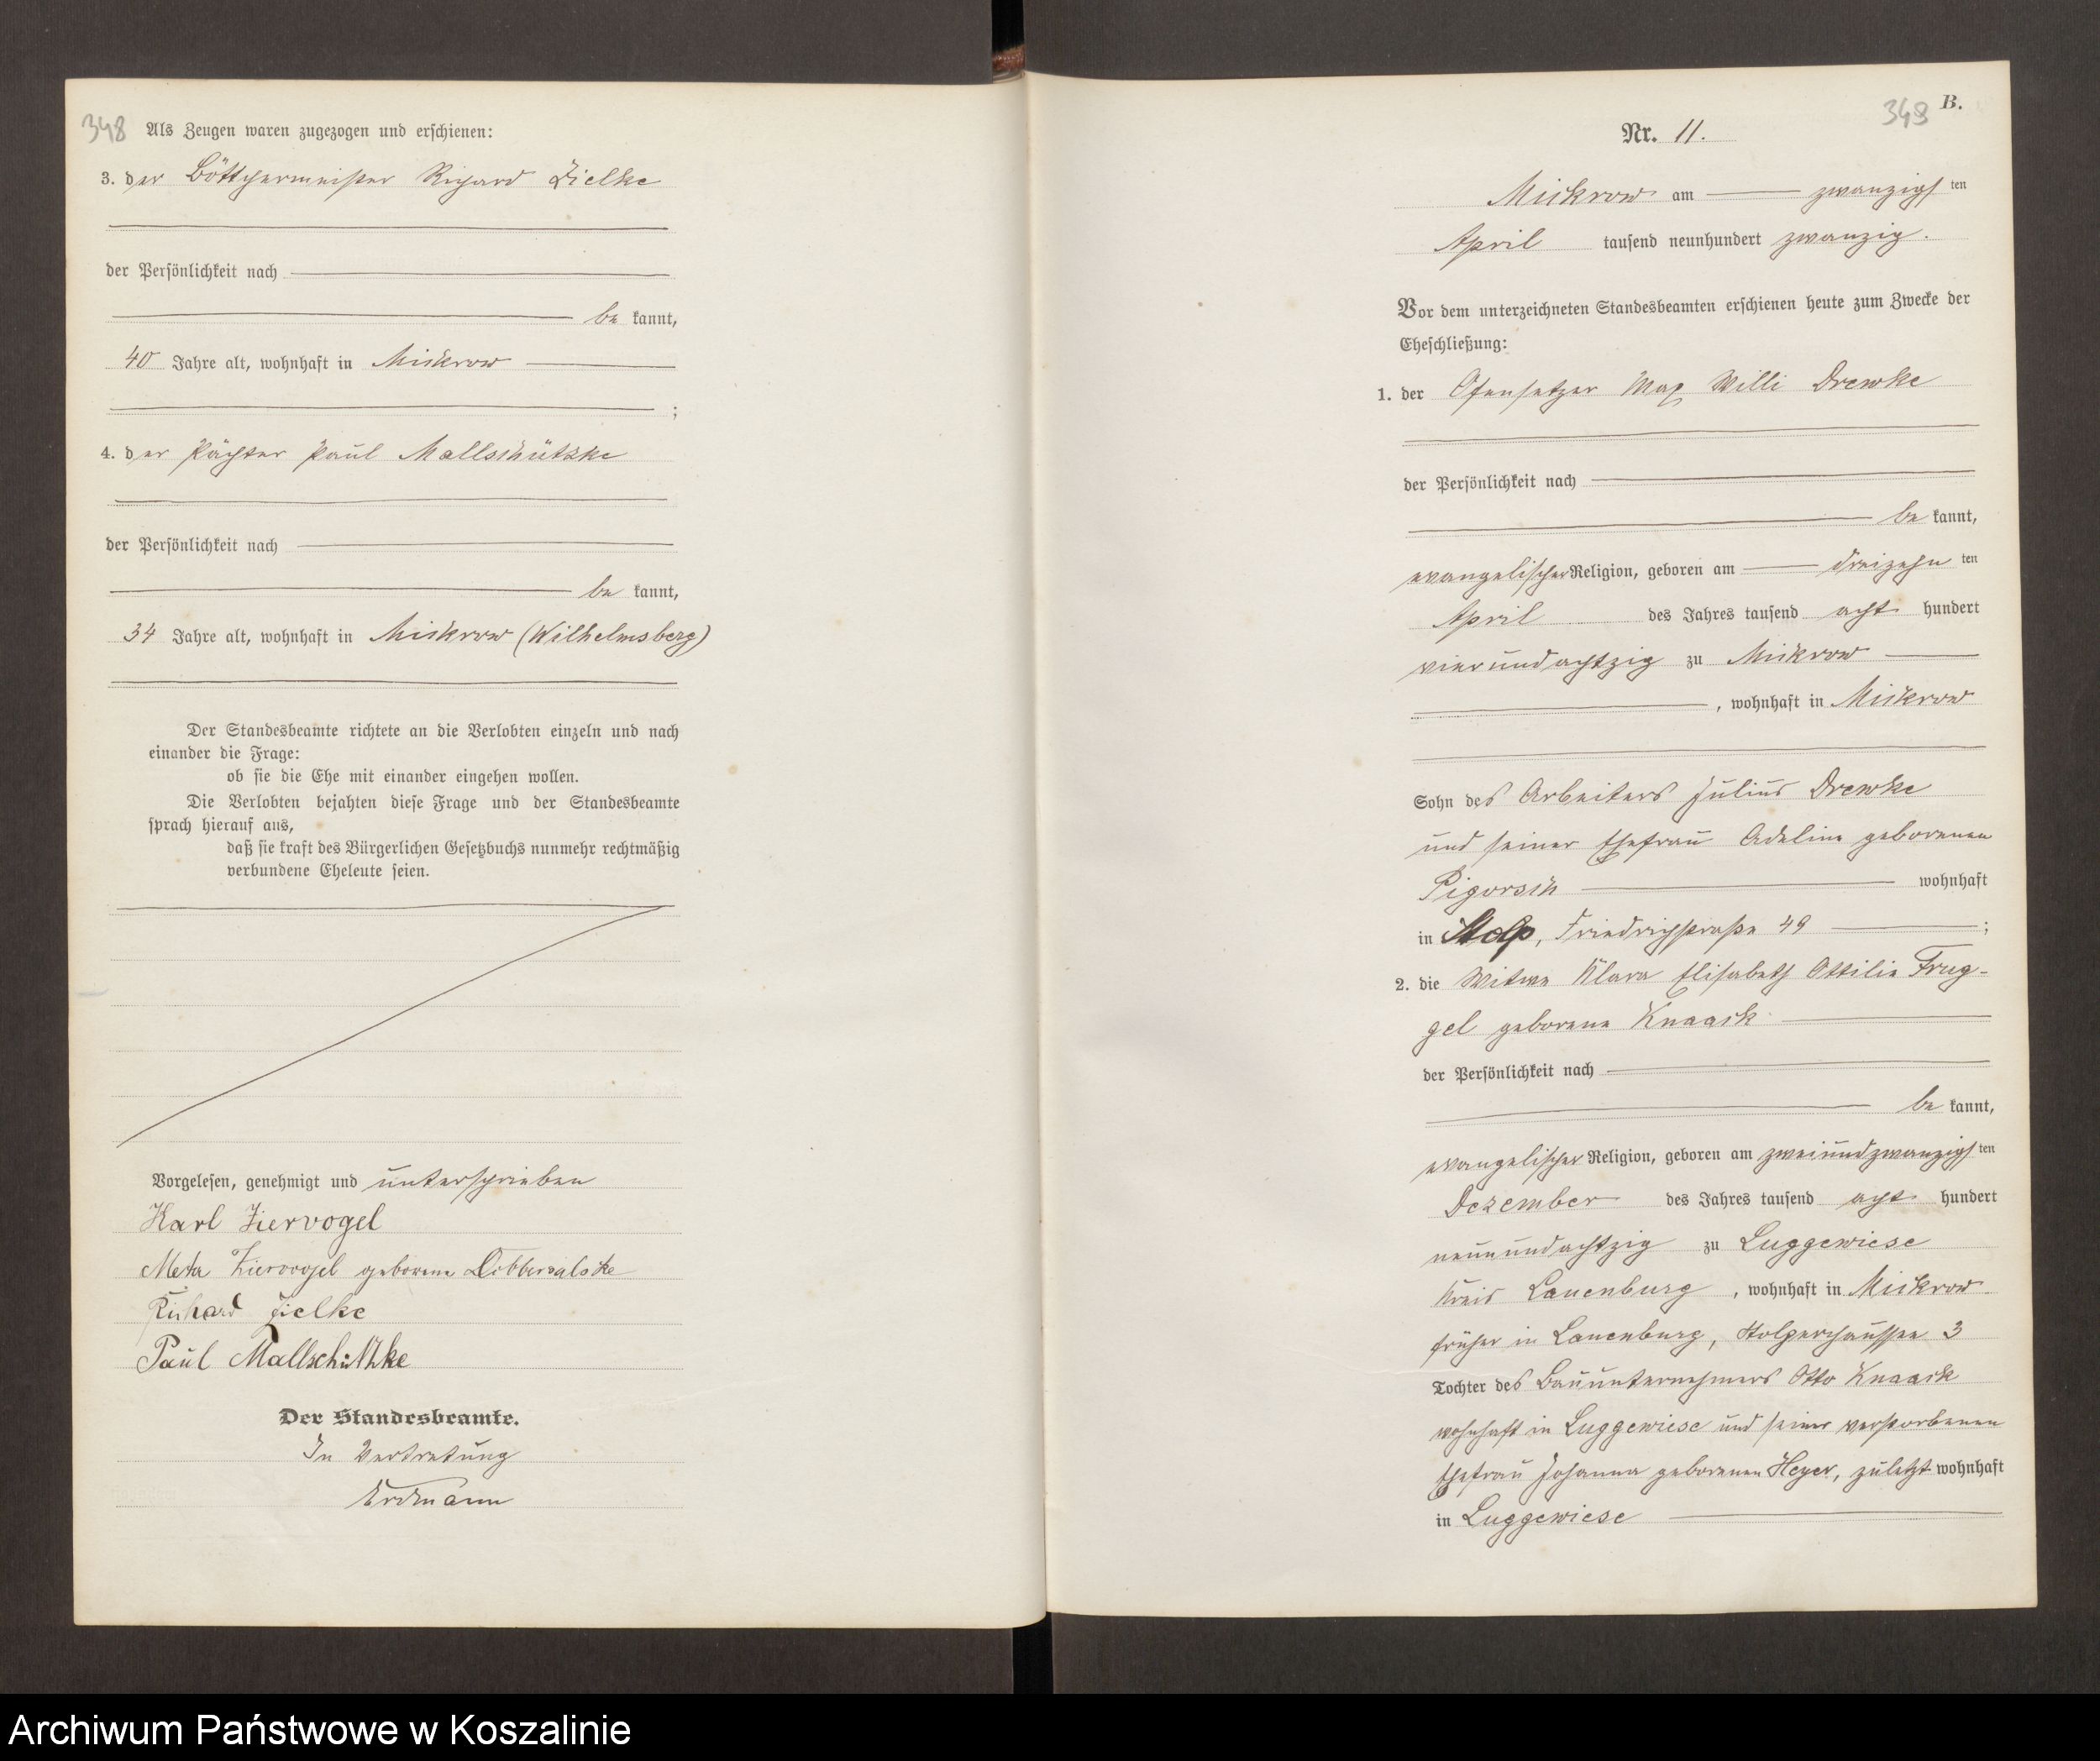 348 Als Zeugen waren zugezogen und erschienen:
3. der Böttchermeister Richard Zielke
der Persönlichkeit nach
be kannt,
40 Jahre alt, wohnhaft in Mickrow
;
4. der Pächter Paul Mallschützke
der Persönlichkeit nach
be kannt,
34 Jahre alt, wohnhaft in Mickrow (Wilhelmsberg)
Der Standesbeamte richtete an die Verlobten einzeln und nach
einander die Frage:
ob sie die Ehe mit einander eingehen wollen.
Die Verlobten bejahten diese Frage und der Standesbeamte
sprach hierauf aus,
daß sie kraft des Bürgerlichen Gesetzbuchs nunmehr rechtmäßig
verbundene Eheleute seien.
Vorgelesen, genehmigt und unterschrieben
Karl Ziervogel
Meta Ziervogel geborene
Richard Zielke
Paul Mallschützke
Der Standesbeamte.
In Vertretung
Erdmann
349 B.
Nr. 11.
Mickrow am zwanzigsten
April tausend neunhundert zwanzig.
Vor dem unterzeichneten Standesbeamten erschienen heute zum Zwecke der
Eheschließung:
1. der Ofensetzer Max Willi Drewke
der Persönlichkeit nach
be kannt,
evangelischer Religion, geboren am dreizehn ten
April des Jahres tausend acht hundert
vierundachtzig zu Mickrow
, wohnhaft in Mickrow
Sohn des Arbeiters Julius Drewke
und seiner Ehefrau Adeline geborenen
Pigorsch wohnhaft
in Stolp, Friedrichstraße 49 ;
2. die Witwe Klara Elisabeth Ottilie Frug-
gel geborene Knaack
der Persönlichkeit nach
be kannt,
evangelischer Religion, geboren am zweiundzwanzigsten
Dezember des Jahres tausend acht hundert
neunundachtzig zu Luggewiese
Kreis Lauenburg , wohnhaft in Mickrow
früher in Lauenburg, Stolperchaussee 3
Tochter des Bauunternehmers Otto Knaack
wohnhaft in Luggewiese und seiner verstorbenen
Ehefrau Johanna geborenen Heyer, zuletzt wohnhaft
in Luggewiese
Archiwum Państwowe w Koszalinie